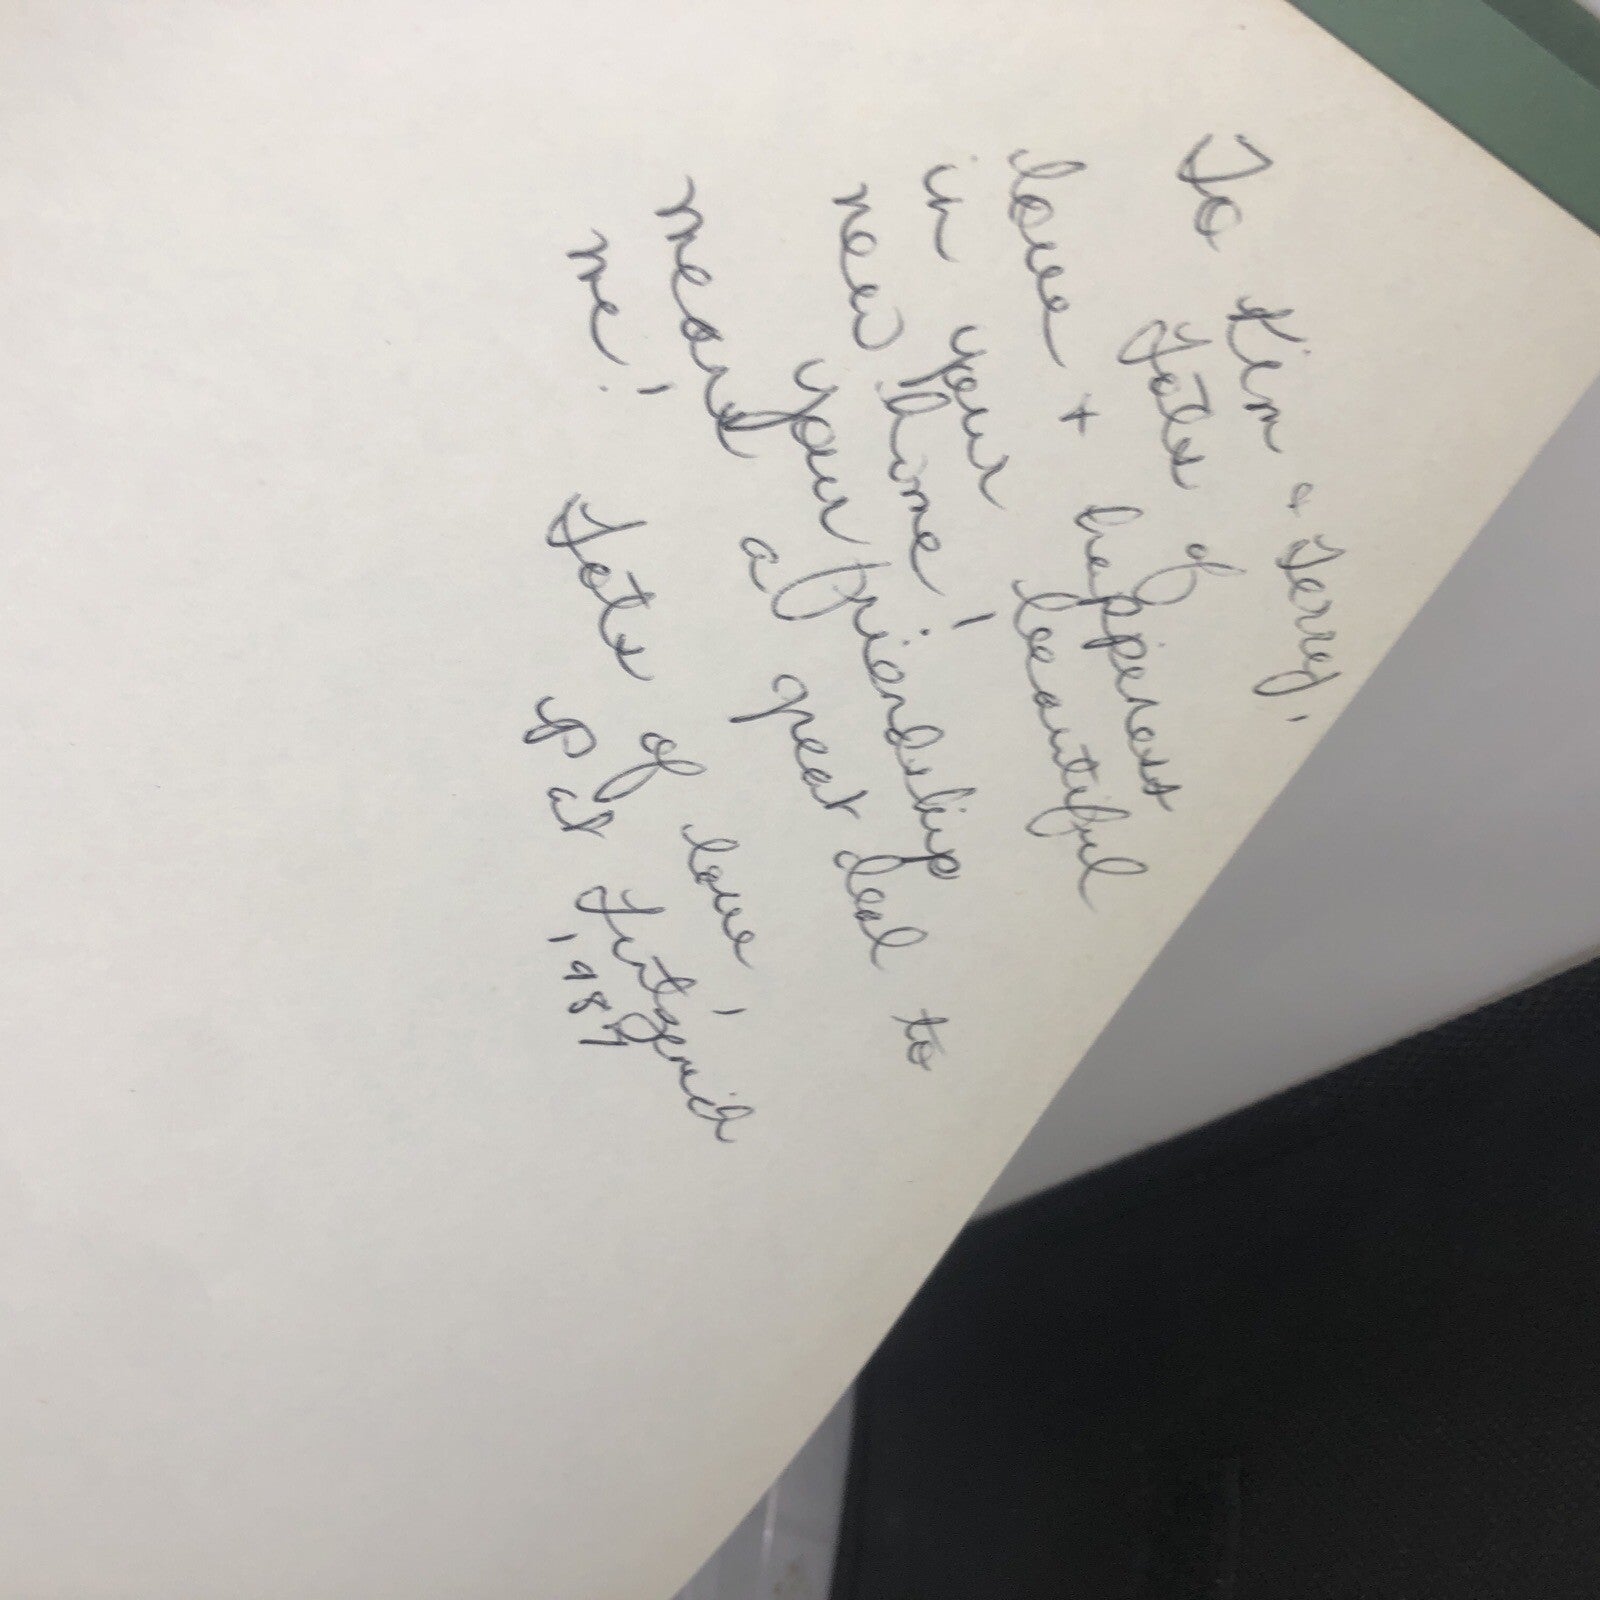 To Kim & Terry,
Lots of
love + happiness
in your beautiful
new home!
your friendship
means a great deal to
me!
Lots of love,
Pat
1987